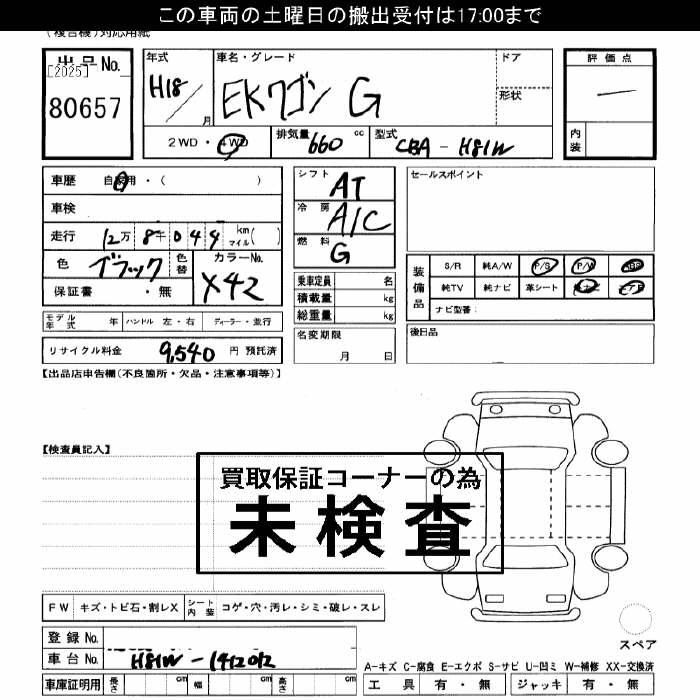 この車両の土曜日の搬出受付は17:00まで
(複合機)対応用紙
出品No.
[2025]
80657
年式 H18 / 月
車名・グレード EKワゴン G
ドア
形状
評価点 —
内装
2WD・4WD 排気量 660 cc 型式 CBA - H81W
車歴 自家用・( )
車検
走行 12万 8千 0 4 4 km マイル( )
色 ブラック 色替 カラーNo. X42
保証書 ・無
モデル年式 年 ハンドル 左・右 ディーラー・並行
リサイクル料金 9,540 円 預託済
シフト AT
冷房 A/C
燃料 G
乗車定員 名
積載量 kg
総重量 kg
名変期限
月 日
セールスポイント
装備品 S/R 純A/W P/S P/W ABS
純TV 純ナビ 革シート
ナビ型番:
後日品
【出品店申告欄(不良箇所・欠品・注意事項等)】
【検査員記入】
買取保証コーナーの為
未検査
FW キズ・トビ石・割レX シート内装 コゲ・穴・汚レ・シミ・破レ・スレ
登録No.
車台No. H81W - 1412012
車庫証明用 長さ cm 幅 cm 高さ cm
スペア
A-キズ C-腐食 E-エクボ S-サビ U-凹ミ W-補修 XX-交換済
工具 有・無 ジャッキ 有・無